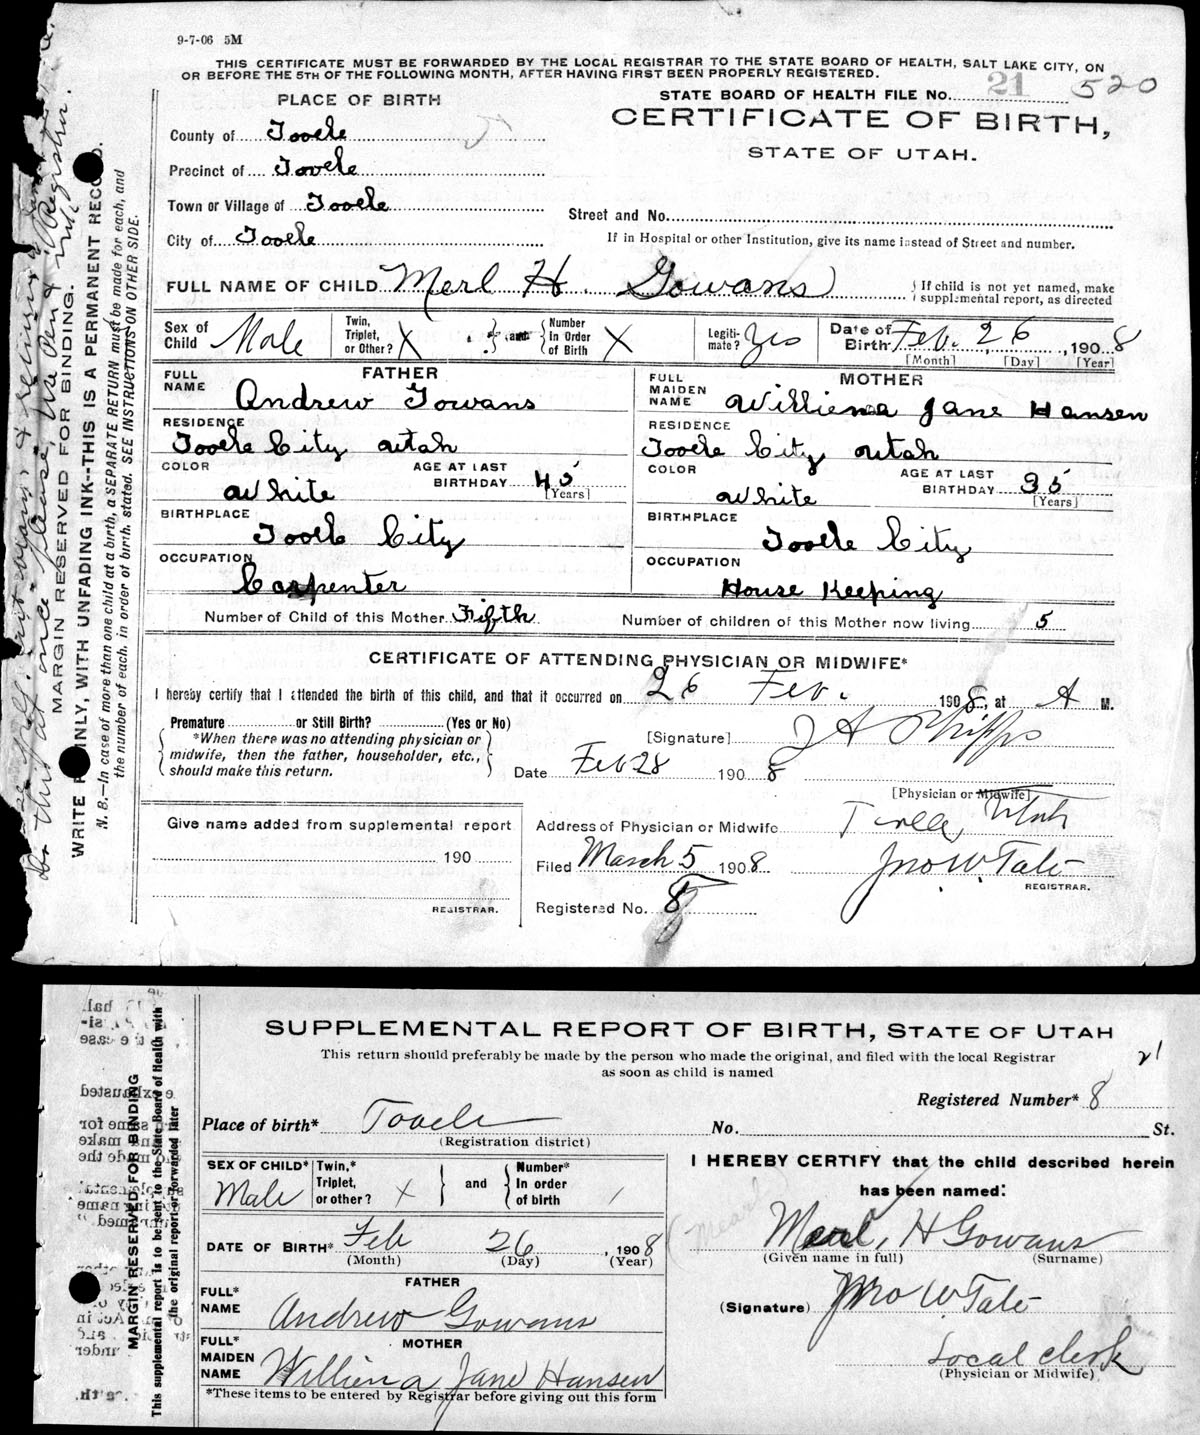 9-7-06 5M
THIS CERTIFICATE MUST BE FORWARDED BY THE LOCAL REGISTRAR TO THE STATE BOARD OF HEALTH, SALT LAKE CITY, ON
OR BEFORE THE 5TH OF THE FOLLOWING MONTH, AFTER HAVING FIRST BEEN PROPERLY REGISTERED.
STATE BOARD OF HEALTH FILE NO. 21 520
PLACE OF BIRTH
CERTIFICATE OF BIRTH,
STATE OF UTAH.
County of Tooele
Precinct of Tooele
Town or Village of Tooele
Street and No.
City of Tooele
If in Hospital or other Institution, give its name instead of Street and number.
FULL NAME OF CHILD Merl H. Gowans
If child is not yet named, make
supplemental report, as directed
Sex of Child Male
Twin, Triplet, or Other? X and Number In Order of Birth X
Legitimate? Yes
Date of Birth Feb. 26, 1908
[Month] [Day] [Year]
FATHER
FULL NAME Andrew Gowans
RESIDENCE Tooele City Utah
COLOR White
AGE AT LAST BIRTHDAY 45 [Years]
BIRTHPLACE Tooele City
OCCUPATION Carpenter
MOTHER
FULL MAIDEN NAME Williena Jane Hansen
RESIDENCE Tooele City Utah
COLOR White
AGE AT LAST BIRTHDAY 35 [Years]
BIRTHPLACE Tooele City
OCCUPATION House Keeping
Number of Child of this Mother Fifth
Number of children of this Mother now living 5
CERTIFICATE OF ATTENDING PHYSICIAN OR MIDWIFE*
I hereby certify that I attended the birth of this child, and that it occurred on 26 Feb. 1908, at A M.
Premature or Still Birth? (Yes or No)
*When there was no attending physician or
midwife, then the father, householder, etc.,
should make this return.
[Signature] J A Phipps
Date Feb 28 1908
[Physician or Midwife]
Give name added from supplemental report
190
REGISTRAR.
Address of Physician or Midwife Tooele, Utah
Filed March 5 1908 Jno. W. Tate
REGISTRAR.
Registered No. 8
MARGIN RESERVED FOR BINDING.
WRITE PLAINLY, WITH UNFADING INK--THIS IS A PERMANENT RECORD.
N. B.—In case of more than one child at a birth, a SEPARATE RETURN must be made for each, and
the number of each, in order of birth, stated. SEE INSTRUCTIONS ON OTHER SIDE.
SUPPLEMENTAL REPORT OF BIRTH, STATE OF UTAH
This return should preferably be made by the person who made the original, and filed with the local Registrar
as soon as child is named
21
Registered Number* 8
Place of birth* Tooele No. St.
(Registration district)
SEX OF CHILD* Male
Twin,* Triplet, or other? X and Number* In order of birth /
DATE OF BIRTH* Feb 26, 1908
(Month) (Day) (Year)
FATHER
FULL* NAME Andrew Gowans
MOTHER
FULL* MAIDEN NAME Williena Jane Hansen
*These items to be entered by Registrar before giving out this form
I HEREBY CERTIFY that the child described herein
has been named:
Merl, H Gowans
(Given name in full) (Surname)
(Signature) Jno W Tate
Local clerk
(Physician or Midwife)
MARGIN RESERVED FOR BINDING
This supplemental report is to be sent to the State Board of Health with
the original report or forwarded later